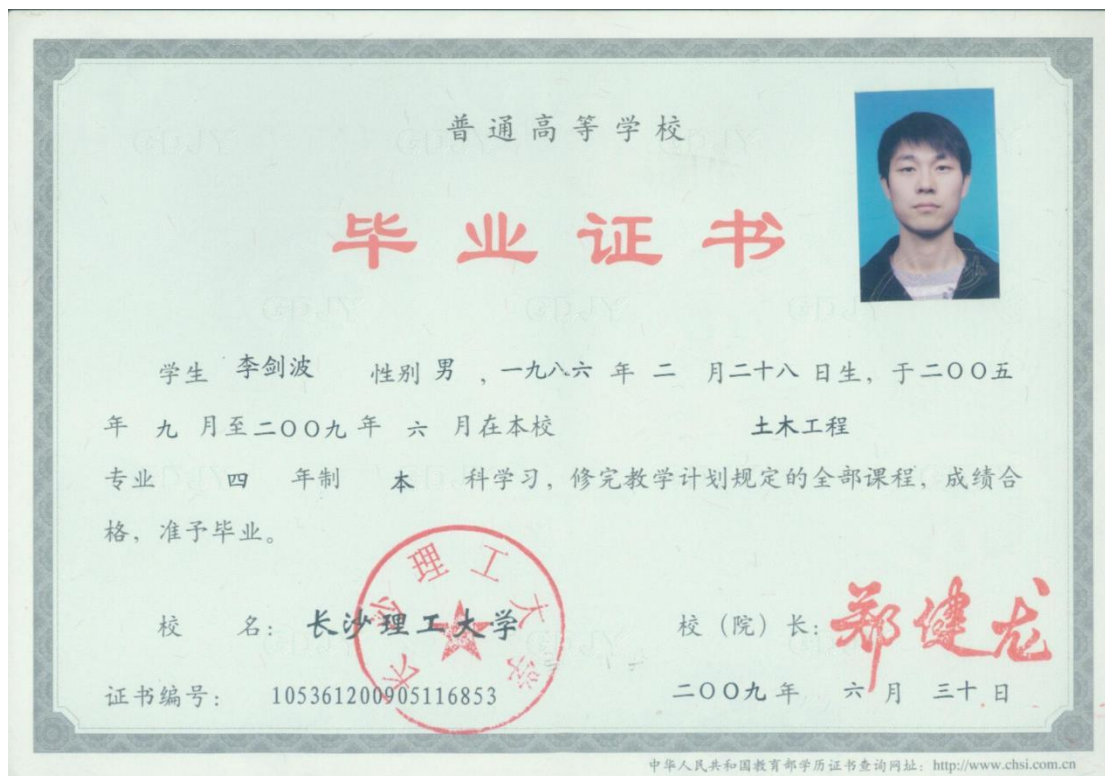 普通高等学校
毕业证书
学生 李剑波 性别 男 ，一九八六 年 二 月二十八 日生，于二〇〇五
年 九 月至二〇〇九 年 六 月在本校 土木工程
专业 四 年制 本 科学习，修完教学计划规定的全部课程，成绩合
格，准予毕业。
校 名： 长沙理工大学
校（院）长： 郑健龙
长沙理工大学
证书编号： 105361200905116853
二〇〇九 年 六 月 三十 日
中华人民共和国教育部学历证书查询网址： http://www.chsi.com.cn